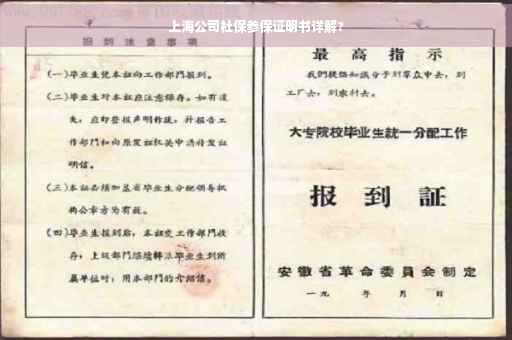 上海公司社保参保证明书详解?
报到注意事项
(一)毕业生凭本证向工作部门报到。
(二)毕业生对本证应注意保存。如有遗
失,应即登报声明作废,并报告工
作部门和向原发证机关申请补发证
明信。
(三)本证必须加盖省毕业生分配领导机
构公章方为有效。
(四)毕业生报到后,本证交工作部门收
存;上级部门继续转派毕业生到所
属单位时,用本部门的介绍信。
最高指示
我们提倡知识分子到群众中去,到
工厂去,到农村去。
大专院校毕业生统一分配工作
报到証
安徽省革命委員会制定
一九 年 月 日